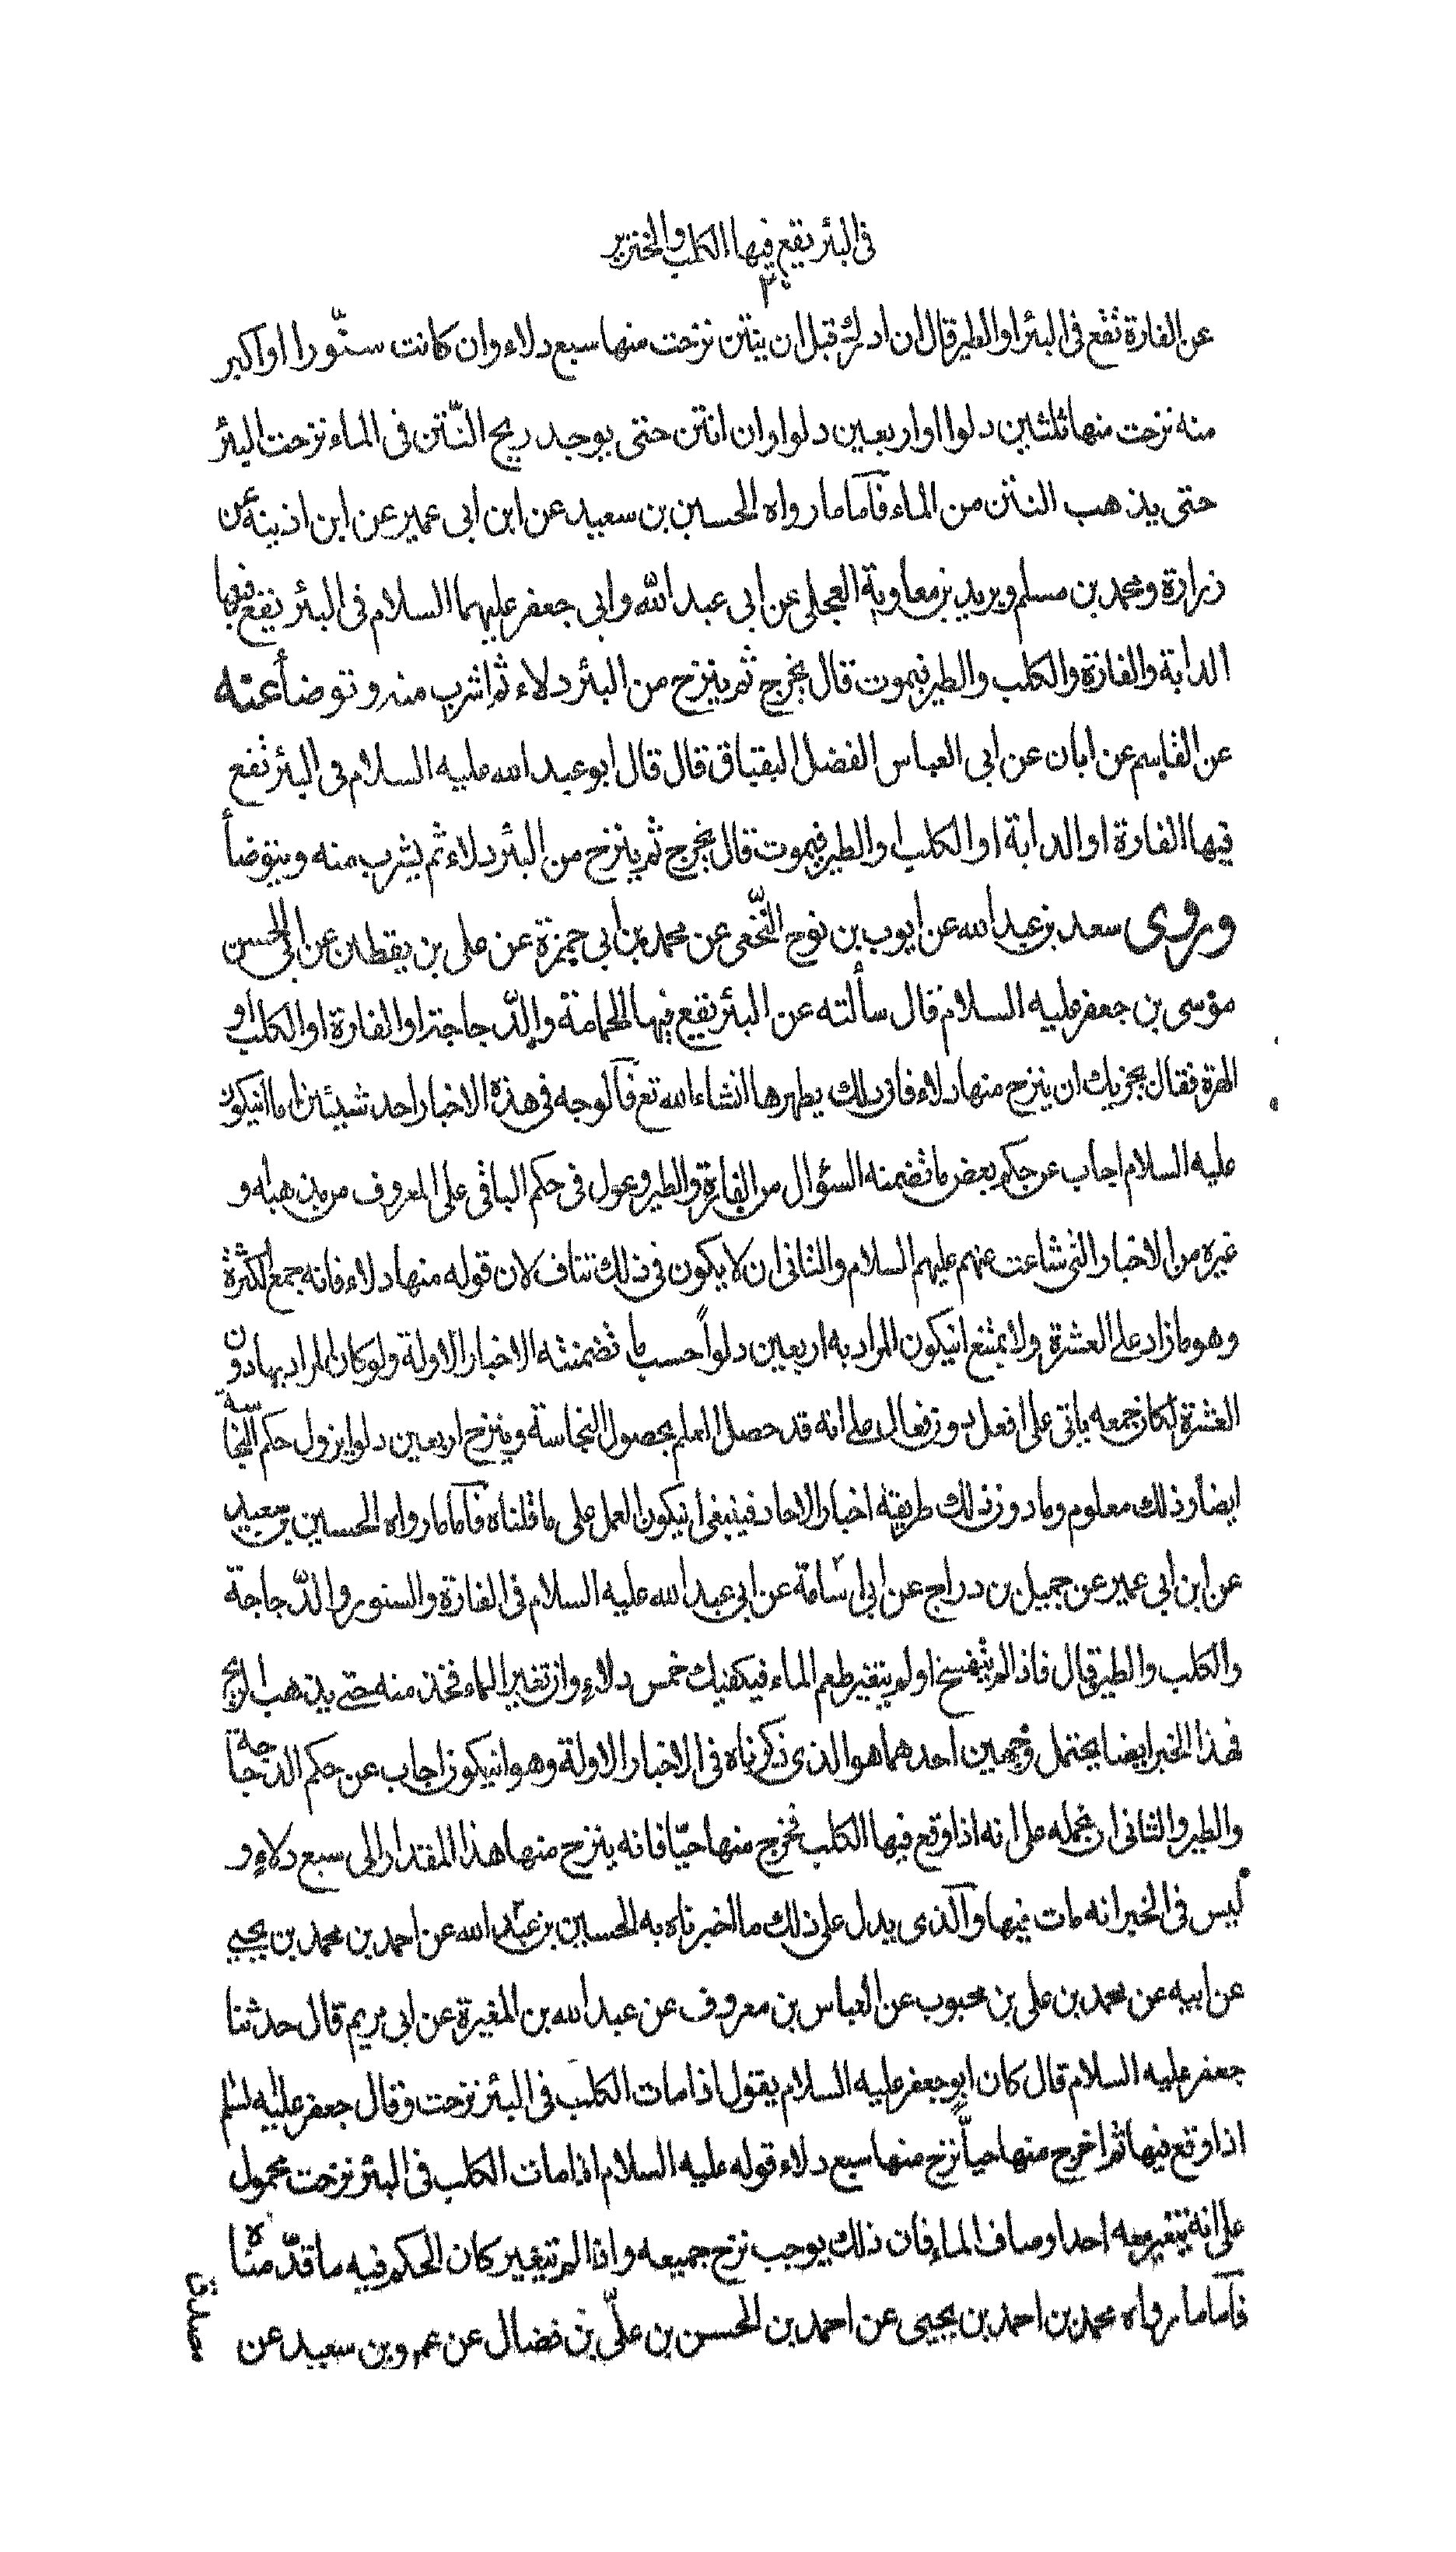 في البئر يقع فيها الكلب والخنزير
٢٠
عن الفارة تقع في البئر او الطير قال ان ادركته قبل ان ينتن نزحت منها سبع دلاء وان كانت سنّورا او اكبر
منه نزحت منها ثلثين دلوا او اربعين دلوا وان انتن حتى يوجد ريح النّتن في الماء نزحت البئر
حتى يذهب النتن من الماء فآما ما رواه الحسين بن سعيد عن ابن ابي عمير عن ابن اذينه عن
زرارة ومحمد بن مسلم وبريد بن معاوية العجلي عن ابي عبد الله وابي جعفر عليهما السلام في البئر تقع فيها
الدابة والفارة والكلب والطير فيموت قال يخرج ثم ينزح من البئر دلاء ثم اشرب منه وتوضأ عنه
عن القاسم عن ابان عن ابي العباس الفضل البقباق قال قال ابو عبد الله عليه السلام في البئر تقع
فيها الفارة او الدابة او الكلب او الطير فيموت قال يخرج ثم ينزح من البئر دلاء ثم يشرب منه ويتوضأ
وروى سعد بن عبد الله عن ايوب بن نوح النّخعي عن محمد بن ابي حمزة عن علي بن يقطين عن ابي الحسن
موسى بن جعفر عليه السلام قال سألته عن البئر تقع فيها الحمامة والدّجاجة او الفارة او الكلب او
الهرة فقال يجزيك ان ينزح منها دلاء فان ذلك يطهرها انشاء الله تع فآلوجه في هذه الاخبار احد شيئين اما ان يكون
عليه السلام اجاب عن حكم بعض ما تضمنه السؤال من الفارة والطير وعول في حكم الباقي على المعروف من مذهبه و
غيره من الاخبار التي شاعت عنهم عليهم السلام والثاني ان لا يكون في ذلك تناف لان قوله منها دلاء فانه جمع الكثرة
وهو ما زاد على العشرة ولا يمتنع ان يكون المراد به اربعين دلواً حسب ما تضمنته الاخبار الاولة ولو كان المراد بها دون
العشرة لكان جمعه ياتي على افعل دون فعال على انه قد حصل العلم بحصول النجاسة وبنزح اربعين دلوا يزول حكم النّجاسة
ايضا وذلك معلوم وما دون ذلك طريقة اخبار الاحاد فينبغي ان يكون العمل على ما قلناه فآما ما رواه الحسين بن سعيد
عن ابن ابي عمير عن جميل بن دراج عن ابي اسامة عن ابي عبد الله عليه السلام في الفارة والسنور والدّجاجة
والكلب والطير قال فاذا لم يتفسخ او لم يتغير طعم الماء فيكفيك خمس دلاء وان تغير الماء فخذ منه حتى يذهب الريح
فهذا الخبر ايضا يحتمل وجهين احدهما هو الذي ذكرناه في الاخبار الاولة وهو ان يكون اجاب عن حكم الدجاجة
والطير والثاني ان نحمله على انه اذا وقع فيها الكلب فخرج منها حيّا فانه ينزح منها هذا المقدار الى سبع دلاء و
ليس في الخبر انه مات فيها وآلذي يدل على ذلك ما اخبرناه به الحسين بن عبيد الله عن احمد بن محمد بن يحيى
عن ابيه عن محمد بن علي بن محبوب عن العباس بن معروف عن عبد الله بن المغيرة عن ابي مريم قال حدثنا
جعفر عليه السلام قال كان ابو جعفر عليه السلام يقول اذا مات الكلب في البئر نزحت وقال جعفر عليه السلم
اذا وقع فيها ثم اخرج منها حياً نزح منها سبع دلاء قوله عليه السلام اذا مات الكلب في البئر نزحت محمول
على انه يتغير معه احد اوصاف الماء فان ذلك يوجب نزح جميعه واذا لم يتغير كان الحكم فيه ما قدّمناه
فآما ما رواه محمد بن احمد بن يحيى عن احمد بن الحسن بن عليّ بن فضال عن عمرو بن سعيد عن
مصدق